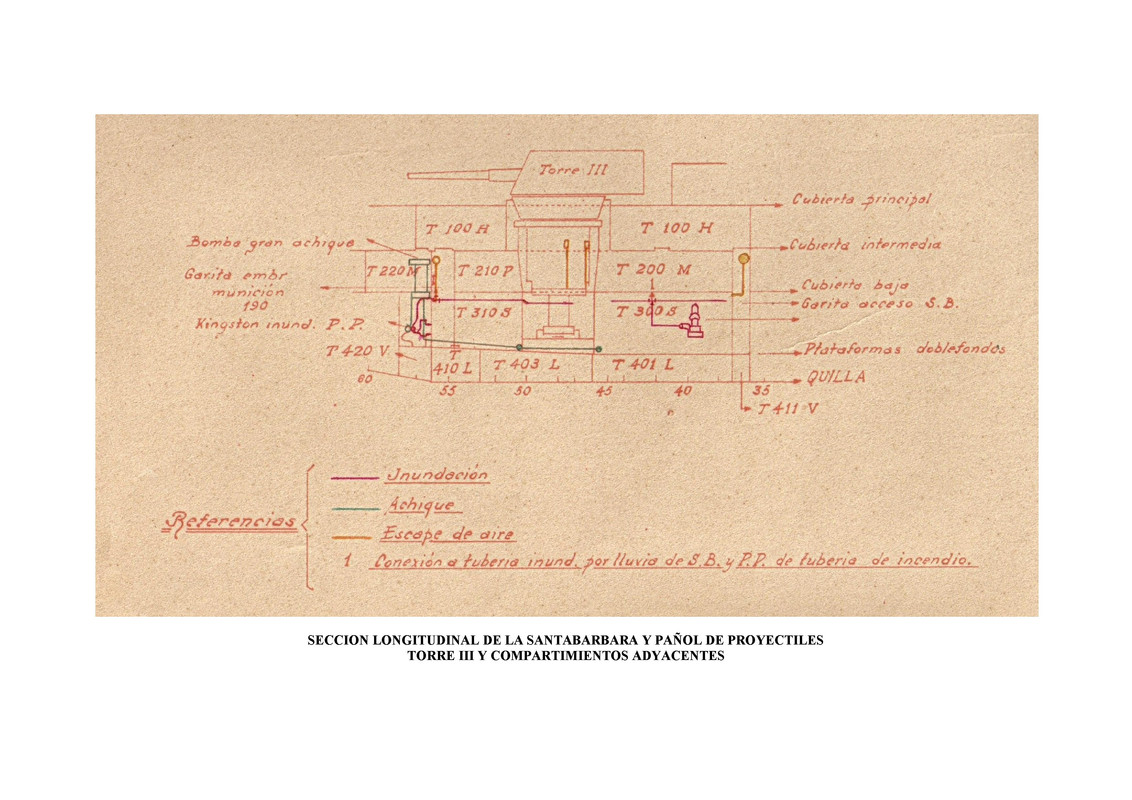 Torre III
Cubierta principal
T 100 H
T 100 H
Bomba gran achique
Cubierta intermedia
T 220 M
T 210 P
T 200 M
Garita embr
munición
190
Cubierta baja
Garita acceso S.B.
1
T 310 S
T 300 S
Kingston inund. P.P.
T 420 V
T
410 L
T 403 L
T 401 L
Plataformas doblefondos
60
55
50
45
40
35
QUILLA
T 411 V
Referencias
Inundación
Achique
Escape de aire
1 Conexión a tuberia inund. por lluvia de S.B. y P.P. de tuberia de incendio.
SECCION LONGITUDINAL DE LA SANTABARBARA Y PAÑOL DE PROYECTILES
TORRE III Y COMPARTIMIENTOS ADYACENTES